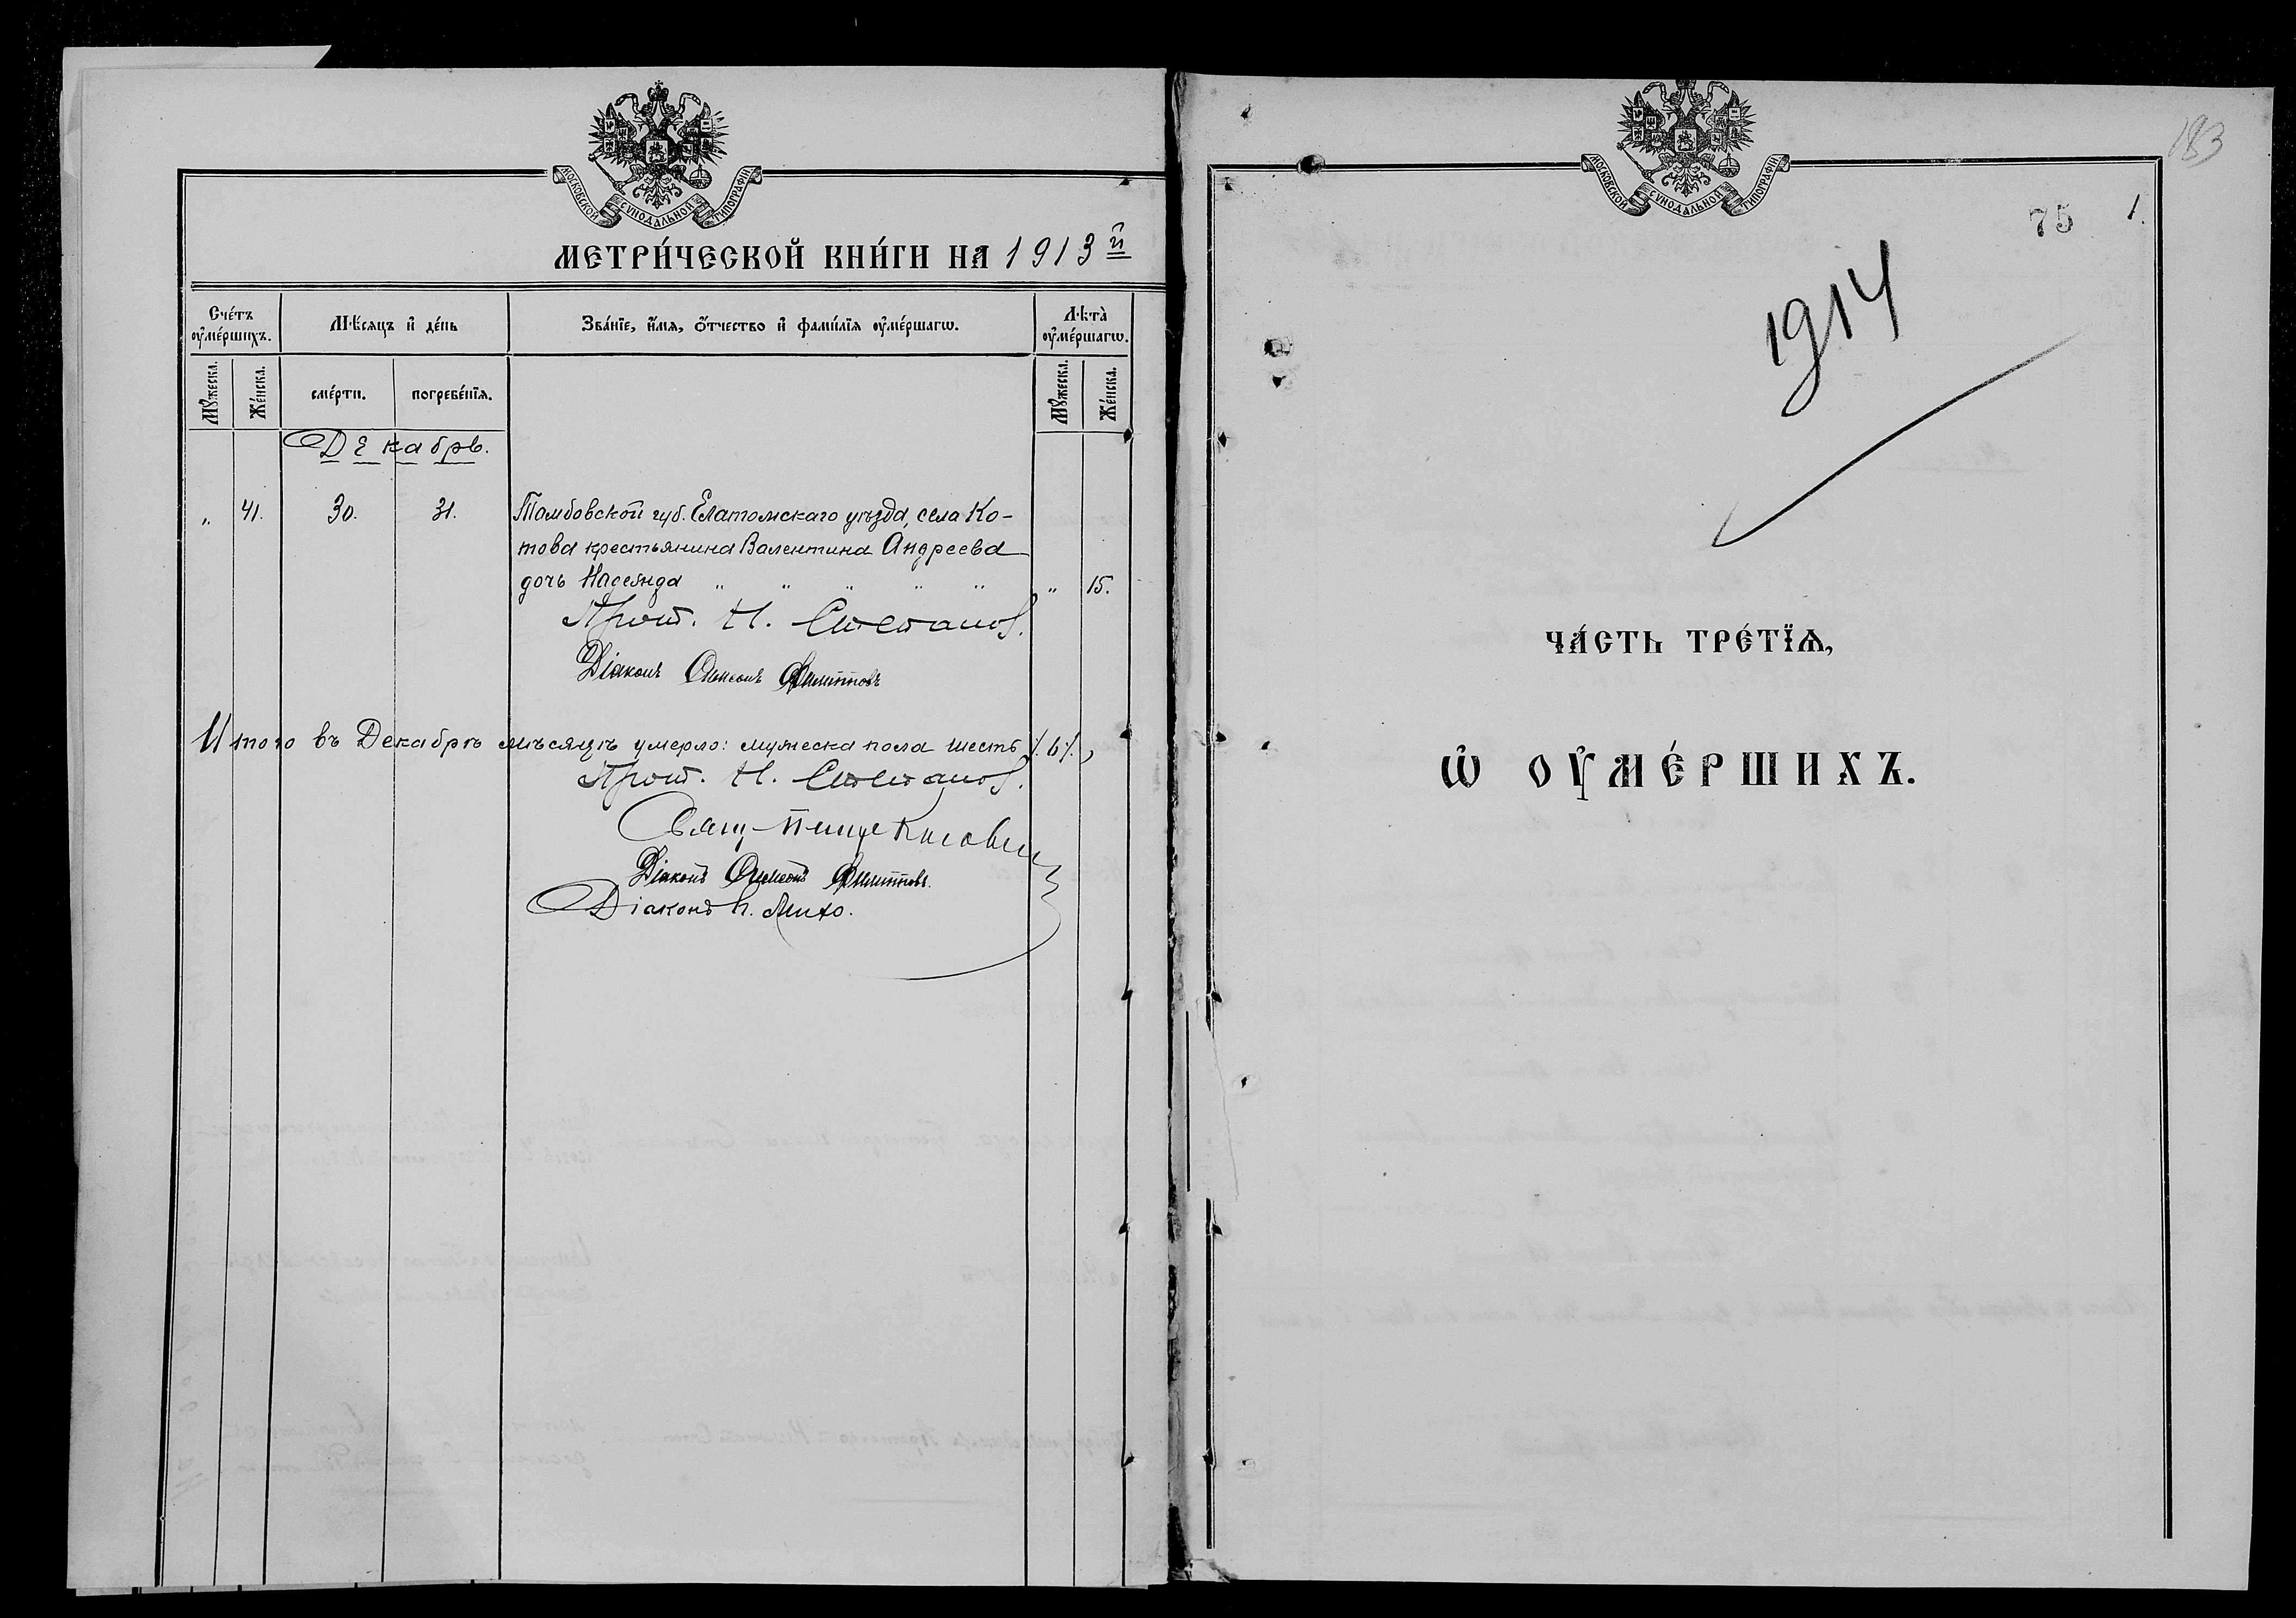 МОСКОВСКОЙ СѴНОДАЛЬНОЙ ТИПОГРАФІИ
МЕТРИ́ЧЕСКОЙ КНИ́ГИ НА 1913й
Сче́тъ ᲂу҆ме́ршихъ.
Мѣ́сяцъ и҆ де́нь
Зва́нїе, и҆́мѧ, ѻ҆́тчество и҆ фамѝлїѧ ᲂу҆ме́ршагѡ.
Лѣ́та ᲂу҆ме́ршагѡ.
Мꙋ́жеска.
Же́нска.
сме́рти.
погребе́нїѧ.
Мꙋ́жеска.
Же́нска.
Декабрь.
" 41. 30. 31. Тамбовской губ. Елатомскаго уѣзда, села Ко-
това крестьянина Валентина Андреева
дочь Надежда " " " " " " 15.
Прот. Н. Стефанов.
Діаконъ Симеонъ Филипповъ
Итого въ Декабрѣ мѣсяцѣ умерло: мужеска пола шесть /.6/.,
Прот. Н. Стефанов.
Свящ.
Діаконъ Симеонъ Филипповъ.
Діаконъ
МОСКОВСКОЙ СѴНОДАЛЬНОЙ ТИПОГРАФІИ
183
75 1.
1914
ЧА́СТЬ ТРЕ́ТЇѦ,
Ѡ҆ ОУ҆МЕ́РШИХЪ.